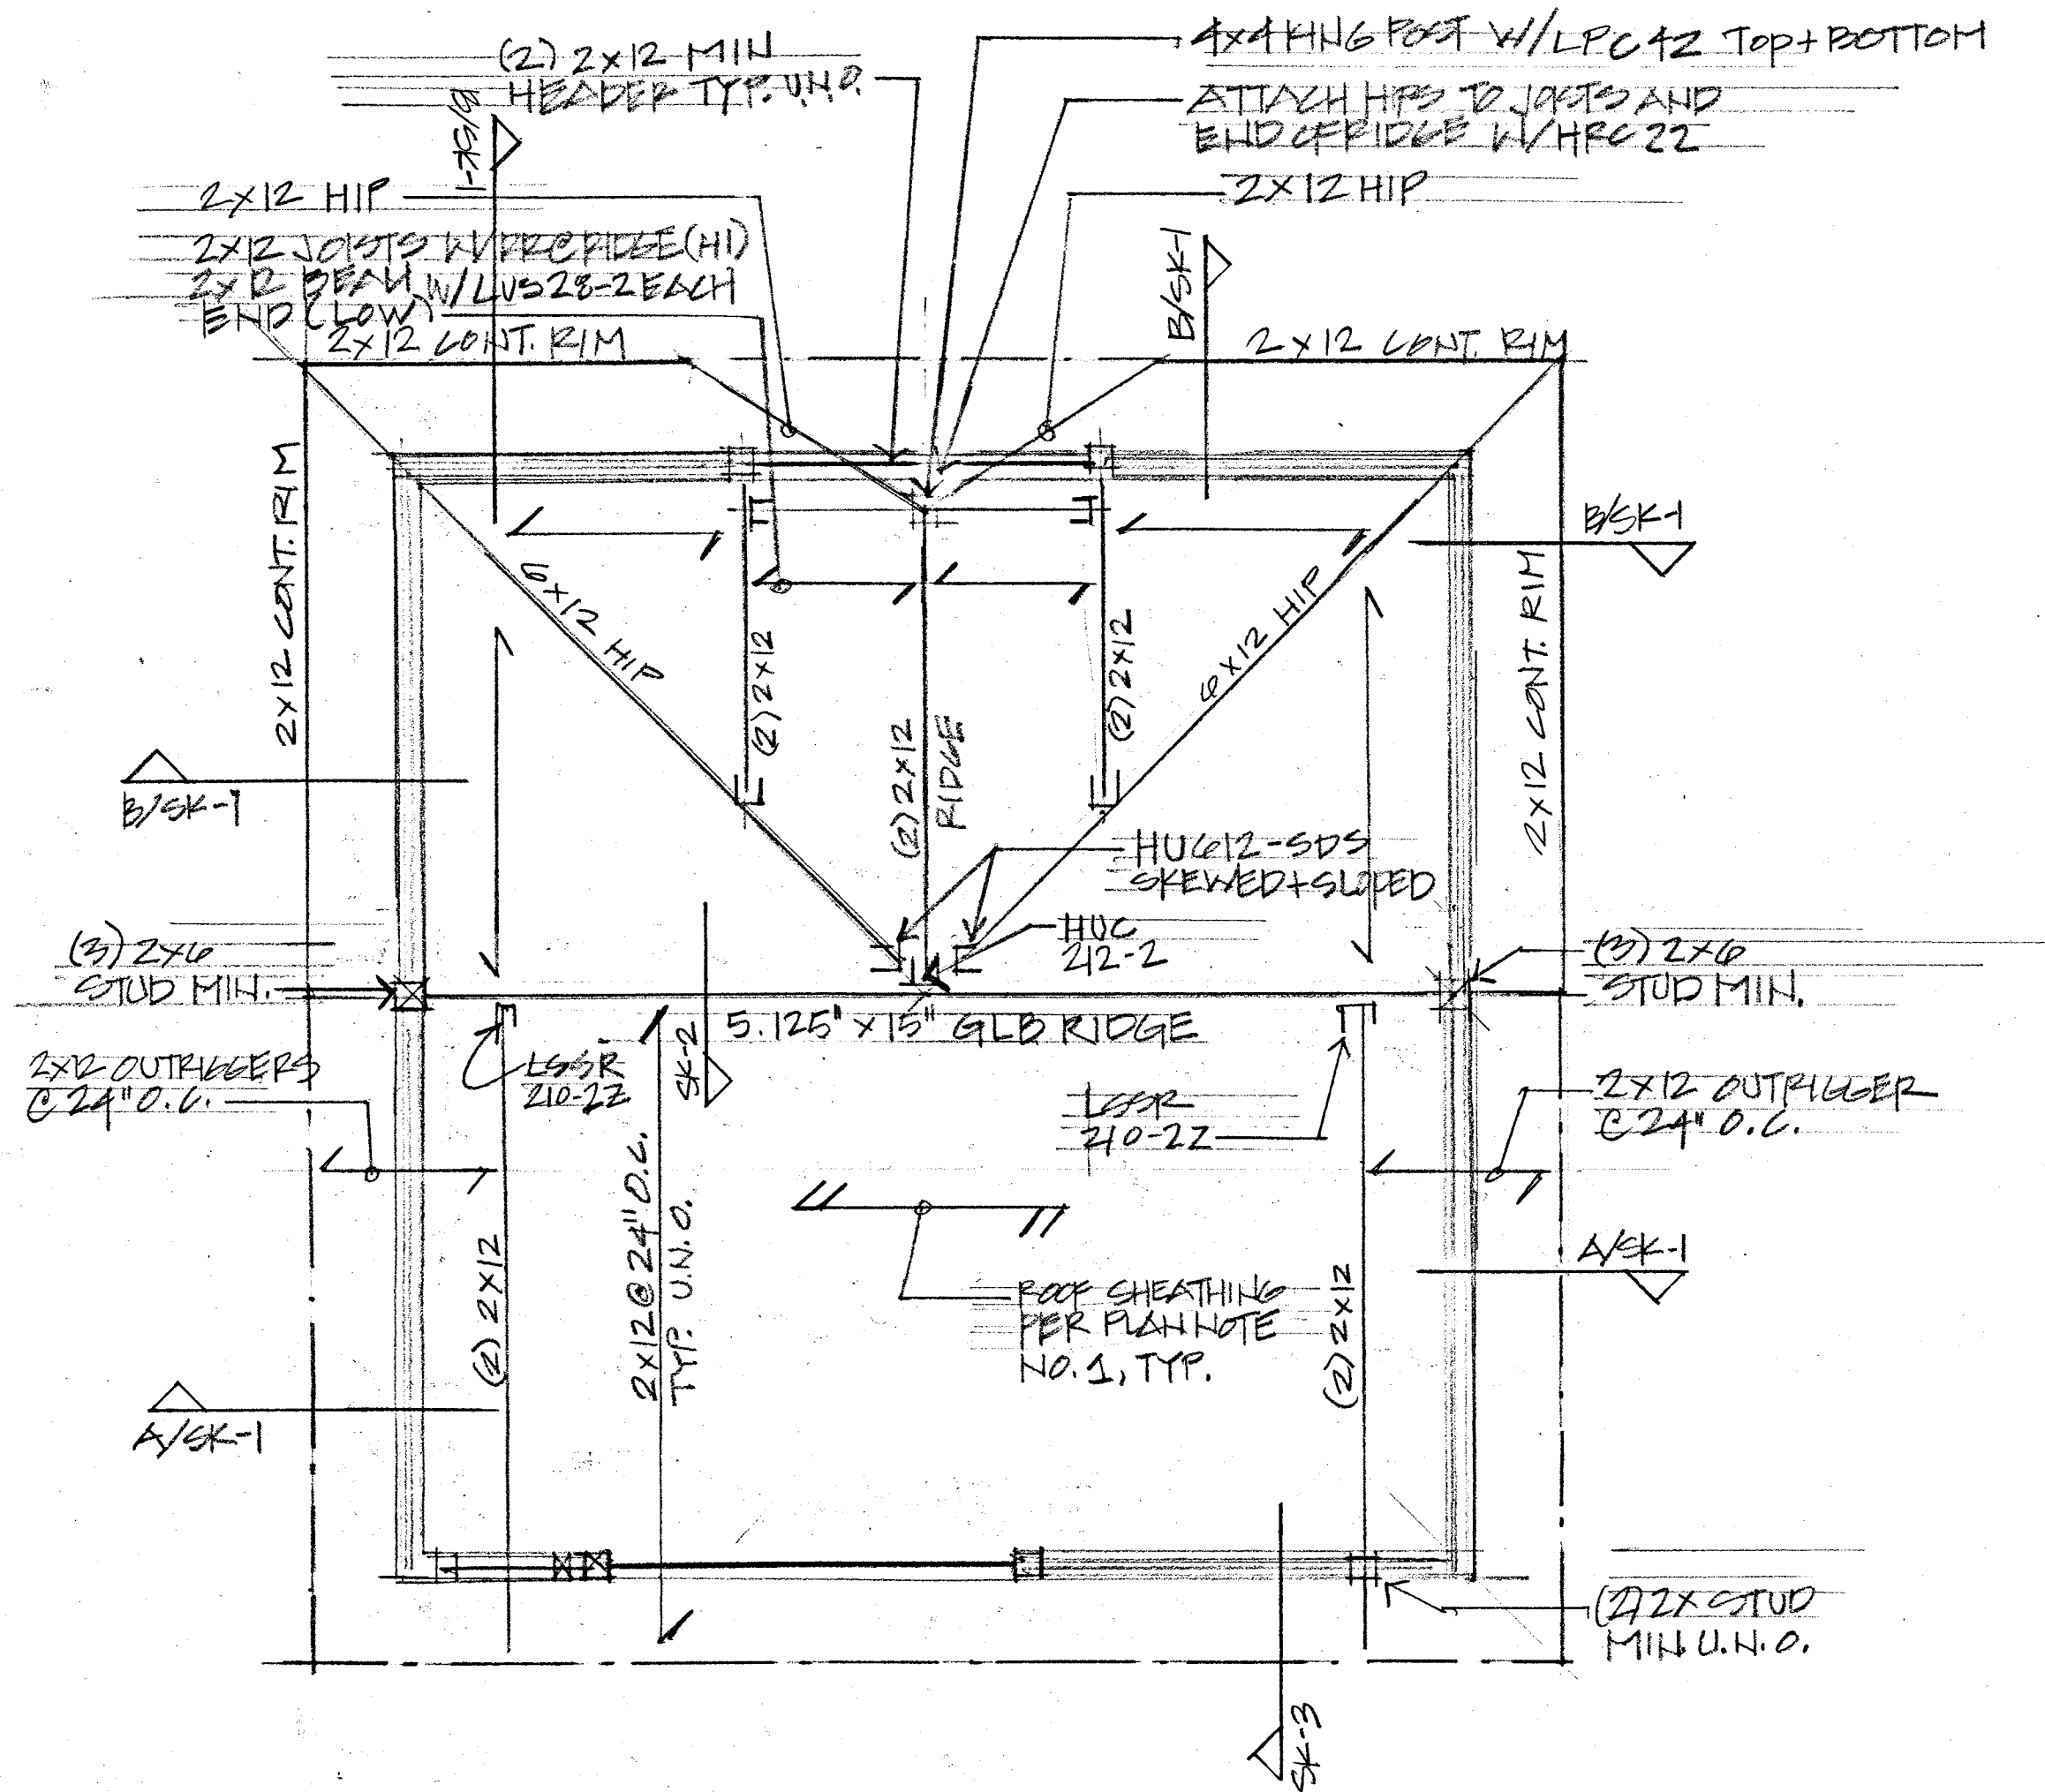 (2) 2X12 MIN
HEADER TYP. U.N.O.
4X4 KING POST W/LPC42 TOP+BOTTOM
ATTACH HIPS TO JOISTS AND
END OF RIDGE W/HRC22
2X12 HIP
B/SK-1
2X12 HIP
2X12 JOISTS W/ RIDGE(HI)
2X12 BEAM W/LUS28-2 EACH
END (LOW)
2X12 CONT. RIM
B/SK-1
2X12 CONT. RIM
2X12 CONT. RIM
B/SK-1
2X12 CONT. RIM
6X12 HIP
(2) 2X12
(2) 2X12
RIDGE
(2) 2X12
6X12 HIP
B/SK-1
HU612-SDS
SKEWED+SLOPED
HUC
212-2
(3) 2X6
STUD MIN.
(3) 2X6
STUD MIN.
5.125" X 15" GLB RIDGE
LSSR
210-2Z
SK-2
2X12 OUTRIGGERS
@ 24" O.C.
LSSR
210-2Z
2X12 OUTRIGGER
@ 24" O.C.
(2) 2X12
2X12 @ 24" O.C.
TYP. U.N.O.
ROOF SHEATHING
PER PLAN NOTE
NO. 1, TYP.
(2) 2X12
A/SK-1
A/SK-1
(2) 2X STUD
MIN. U.N.O.
SK-3